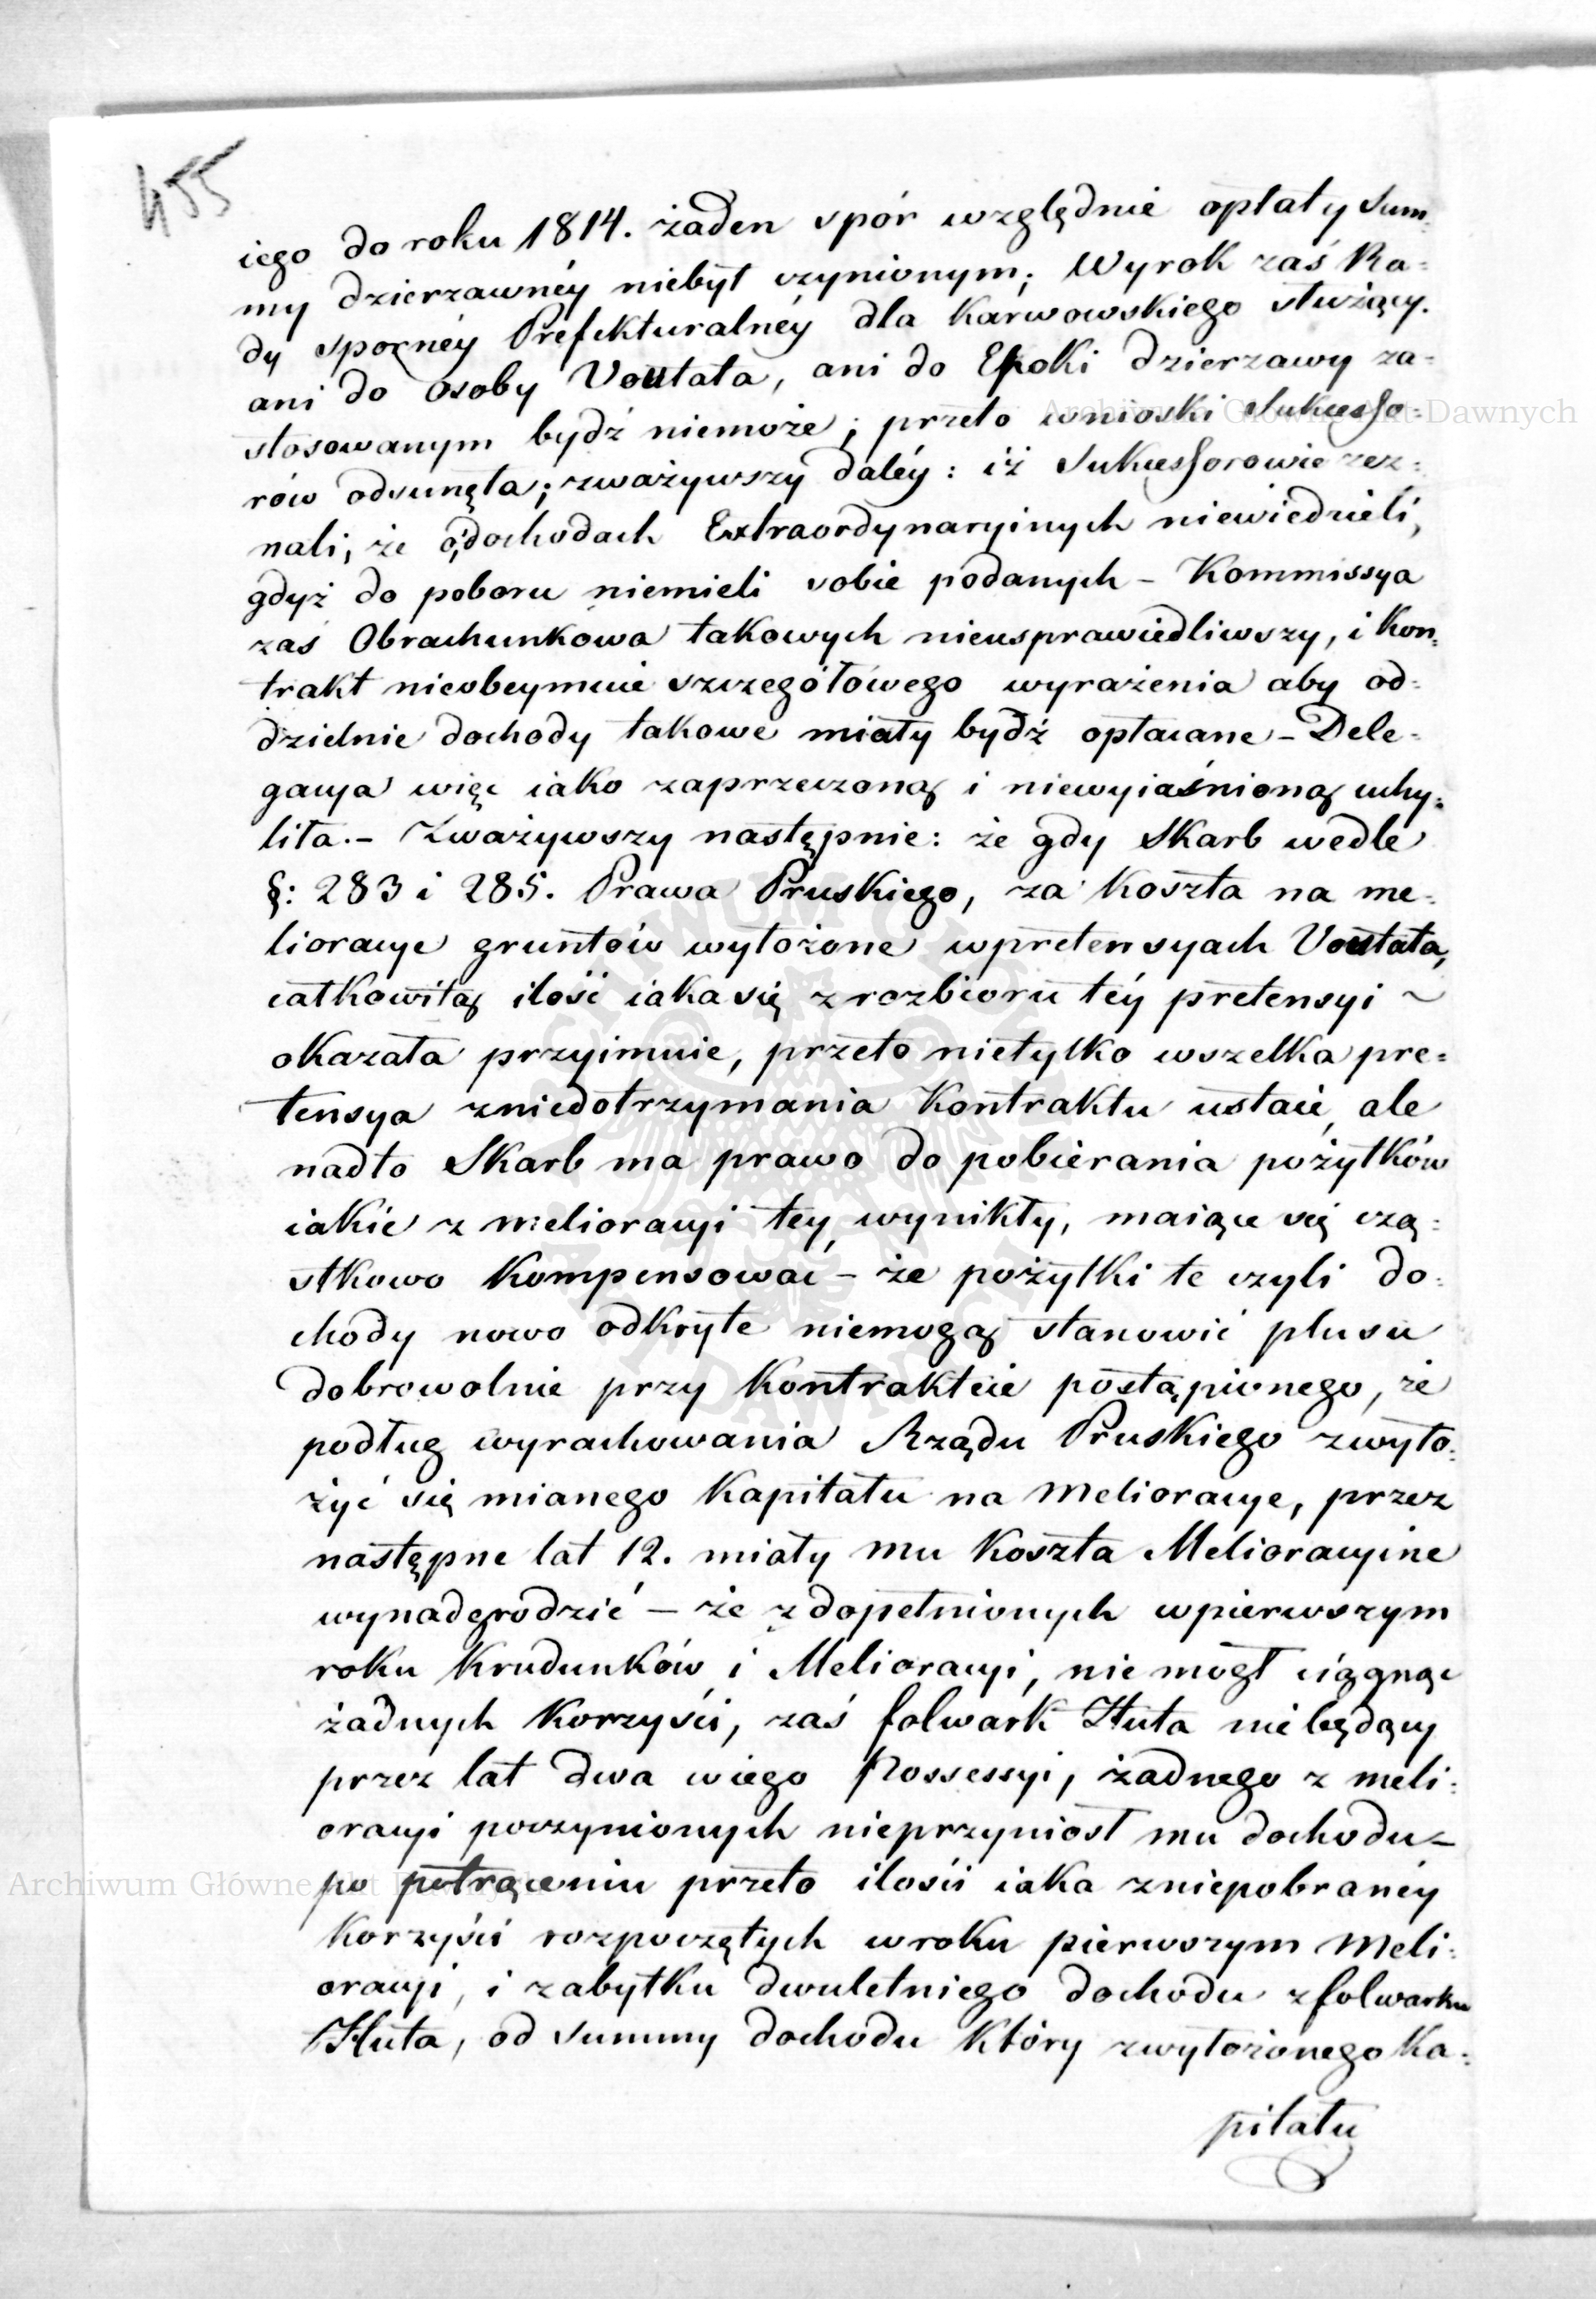 455
iego do roku 1814. żaden spór względnie opłaty Sum=
my dzierzawnéy niebył czynionym; Wyrok zaś Ra=
dy sporney Prefekturalnéy dla Karwowskiego służący.
ani do osoby Voutata, ani do Epoki dzierzawy za=
stosowanym bydź niemoże; przeto wnioski Sukcesso=
rów odsunęła; zważywszy daléy: iż Sukcessorowie zez=
nali, że o dochodach Extraordynaryinych niewiedzieli,
gdyż do poboru niemieli sobie podanych – Kommissya
zaś Obrachunkowa takowych nieusprawiedliwszy, i Kon=
trakt nieobeymuie szczegółowego wyrażenia aby od=
dzielnie dochody takowe miały bydź opłacane – Dele=
gacya więc iako zaprzeczoną i niewyiaśnioną uchy=
liła. – Zważywszy następnie: że gdy Skarb wedle
§: 283 i 285. Prawa Pruskiego, za Koszta na me=
lioracye gruntów wyłożone wpretensyach Voutata,
całkowitą ilość iaka się z rozbioru téy pretensyi ~
okazała przyimuie, przeto nietylko wszelka pre=
tensya zniedotrzymania Kontraktu ustaie, ale
nadto Skarb ma prawo do pobierania pożytków
iakie z melioracyi tey wynikły, maiące się czą=
stkowo Kompensować – że pożytki te czyli do=
chody nowo odkryte niemogą stanowić plusu
dobrowolnie przy Kontrakcie postąpionego, że
podług wyrachowania Rządu Pruskiego zwyło=
żyć się mianego Kapitału na Melioracye, przez
następne lat 12. miały mu Koszta Melioracyine
wynadgrodzić – że z dopełnionych wpierwszym
roku Krudunków i Melioracyi, nie mogł ciągnąc
żadnych Korzyści, zaś folwark Huta nie będący
przez lat dwa wiego Possessyi, żadnego z meli=
oracyi poczynionych nieprzyniosł mu dochodu –
po potrąceniu przeto ilości iaka zniepobranéy
Korzyści rozpoczętych w roku pierwszym Meli=
oracyi, i zabytku dwuletniego dochodu z folwarku
Huta, od summy dochodu Który zwyłożonego Ka=
pitału
Archiwum Główne Akt Dawnych